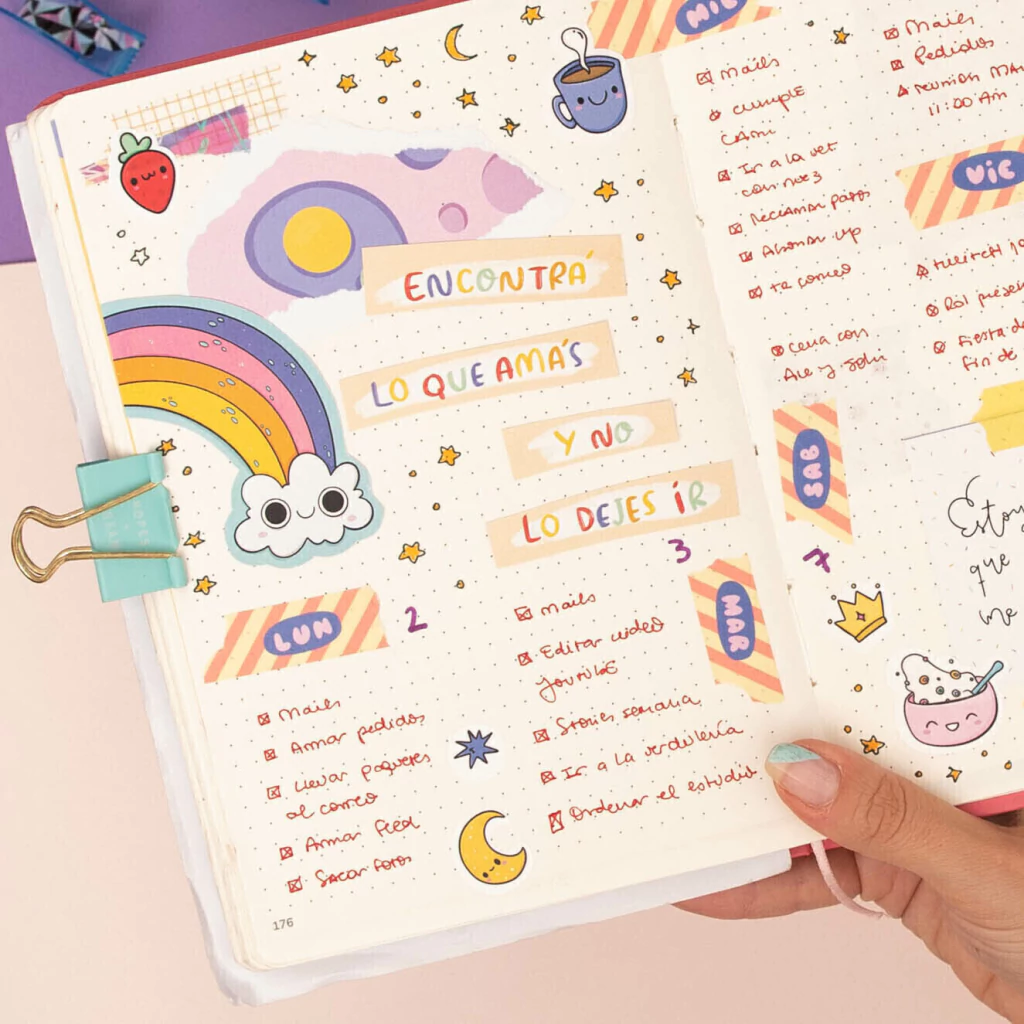 ENCONTRÁ
LO QUE AMÁS
Y NO
LO DEJES ÍR
LUN 2
Mails
Armar pedidos
Llevar paquetes
al correo
Armar Feed
Sacar fotos
3
MAR
Mails
Editar video
YouTUBE
Stories semana
Ir a la verdulería
Ordenar el estudio
176
MIE
Mails
CUMPLE
CAMI
Ir a la vet
con
Reclamar
up
te correo
Cena con
Ale y
Mails
Pedidos
reunion
11:00 Am
VIE
Fiesta de
fin de
SAB
7
Estoy
que
me